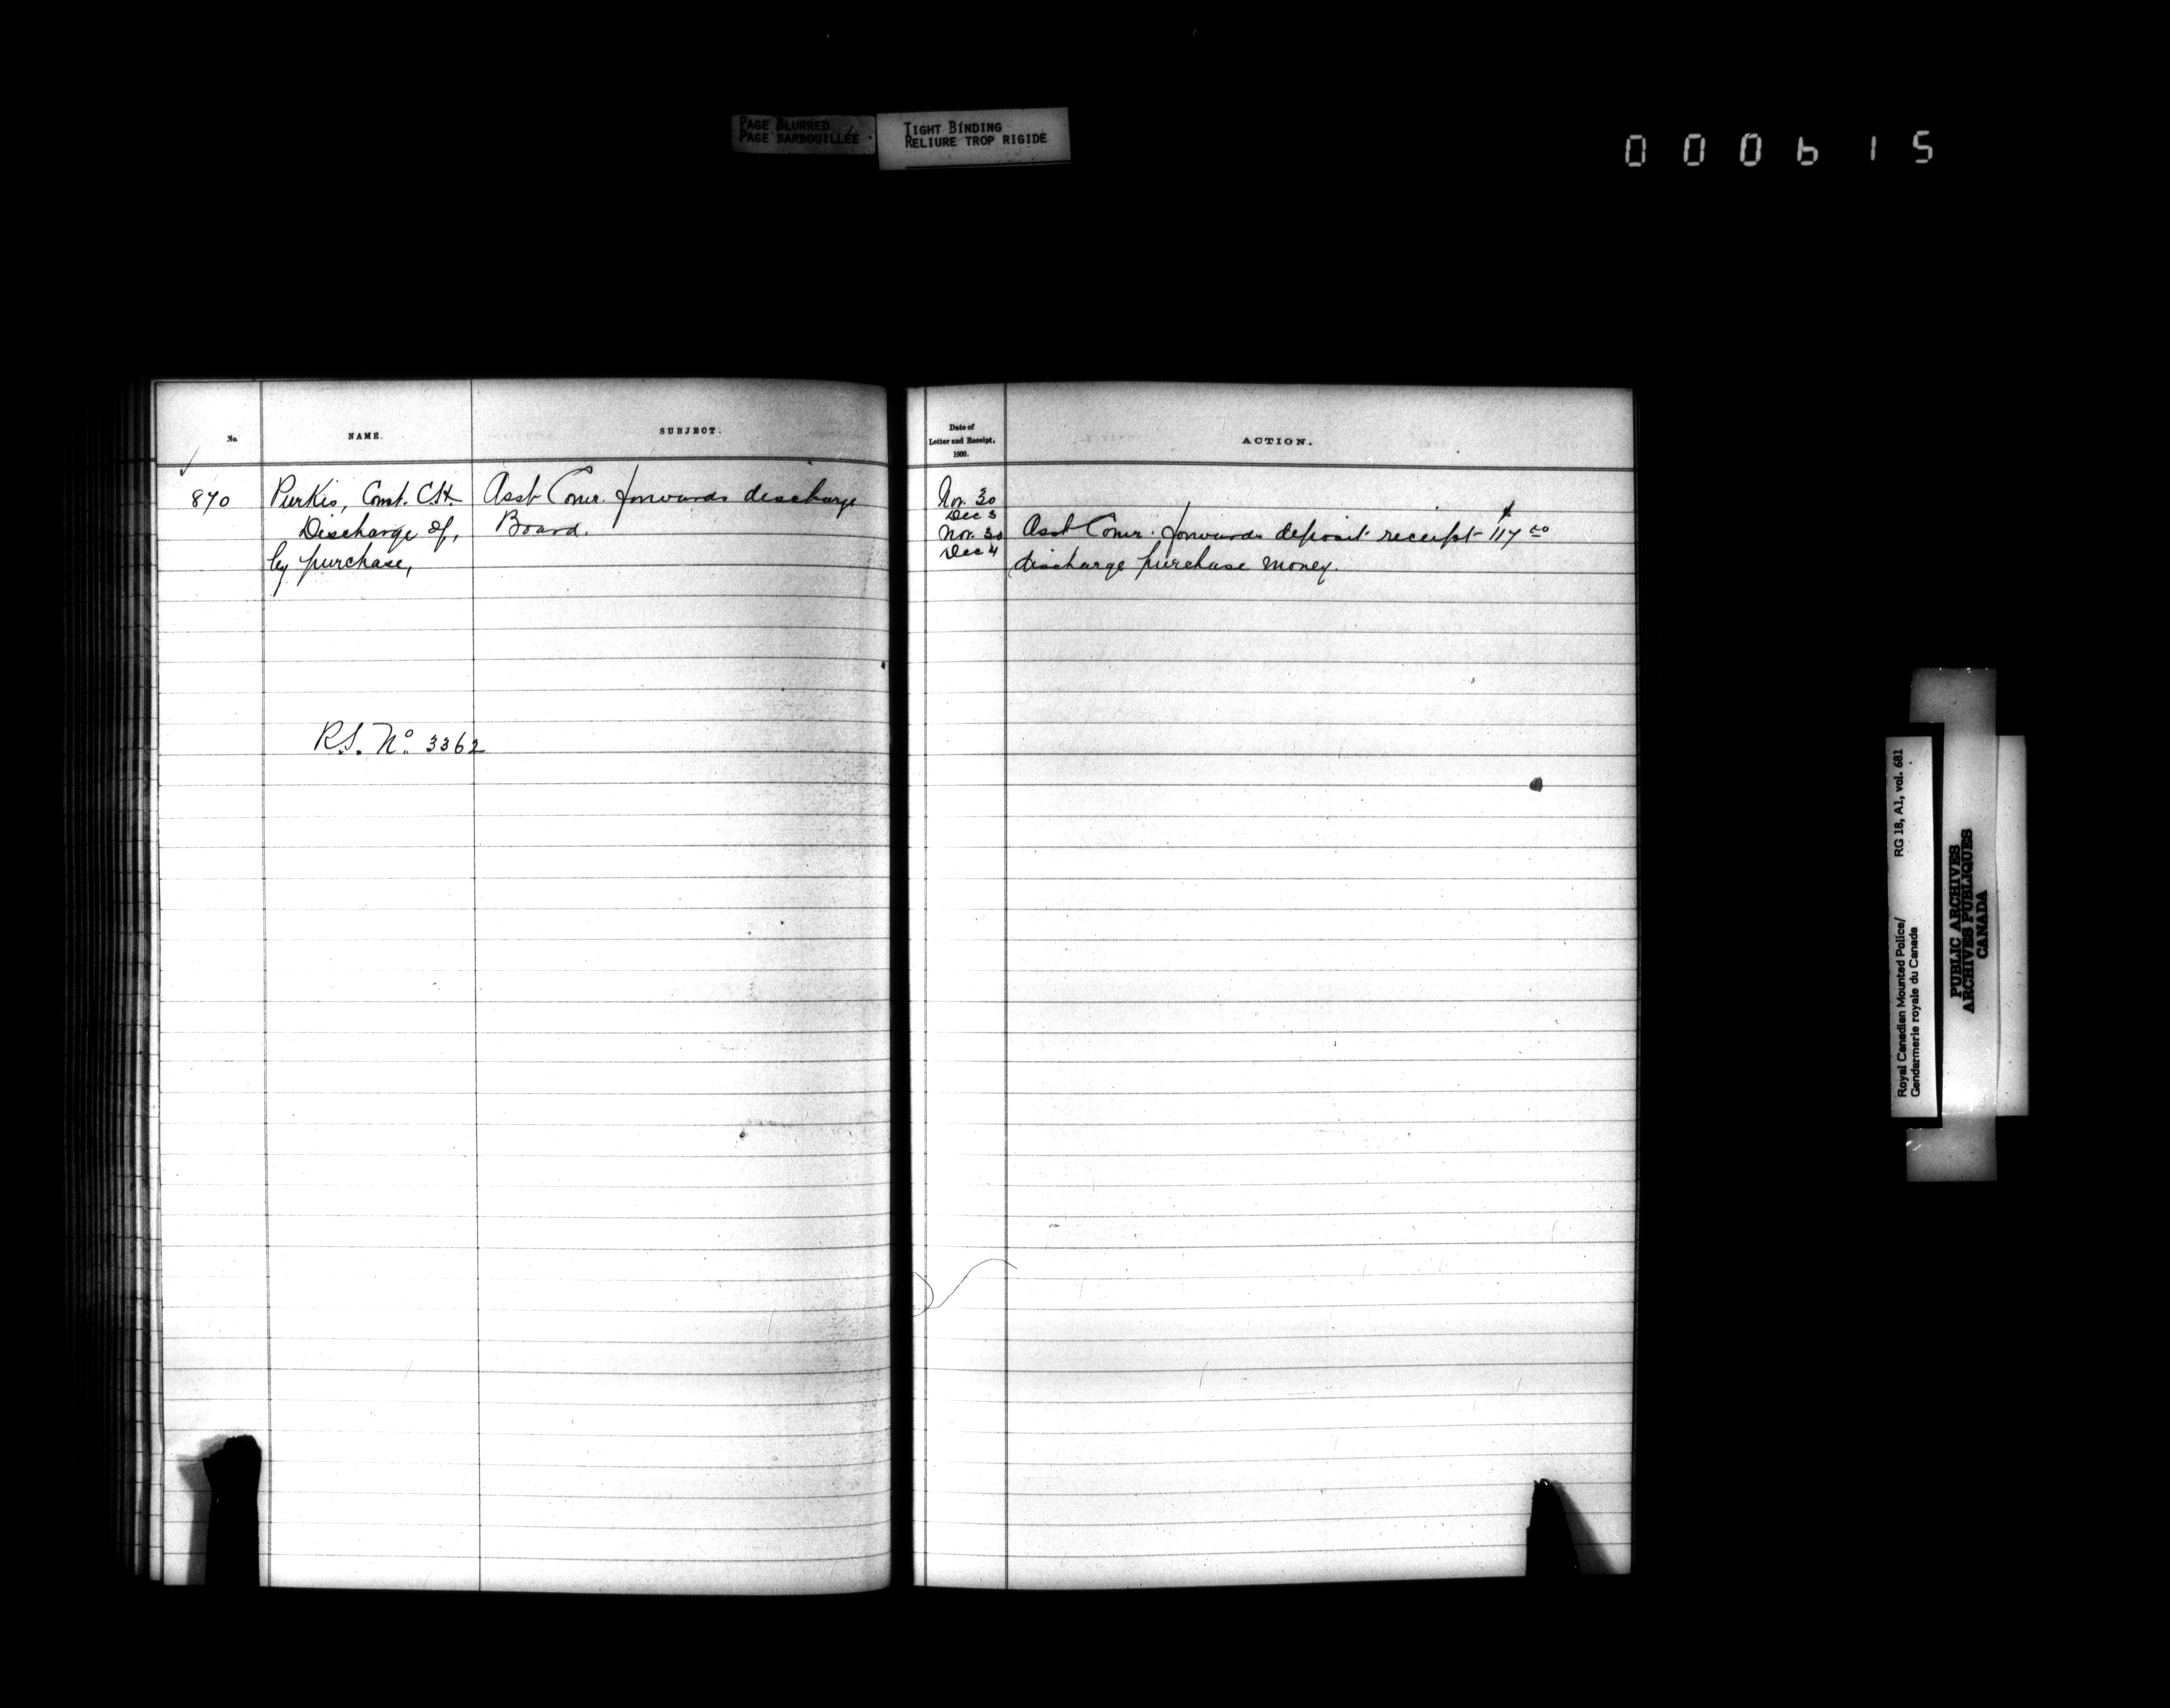 PAGE BLURRED
PAGE BARBOUILLÉE
TIGHT BINDING
RELIURE TROP RIGIDE
000615
No.
NAME.
SUBJECT.
Date of
Letter and Receipt,
1900.
ACTION.
870
Purkis, Const. C.H.
Discharge of,
by purchase,
Asst Comr. forwards discharge
Board.
Nov. 30
Dec 3
Nov. 30
Dec 4
Asst Comr. forwards deposit receipt $117 00
discharge purchase money.
R.S. No. 3362
Royal Canadian Mounted Police/ RG 18, A1, vol. 681
Gendarmerie royale du Canada
PUBLIC ARCHIVES
ARCHIVES PUBLIQUES
CANADA